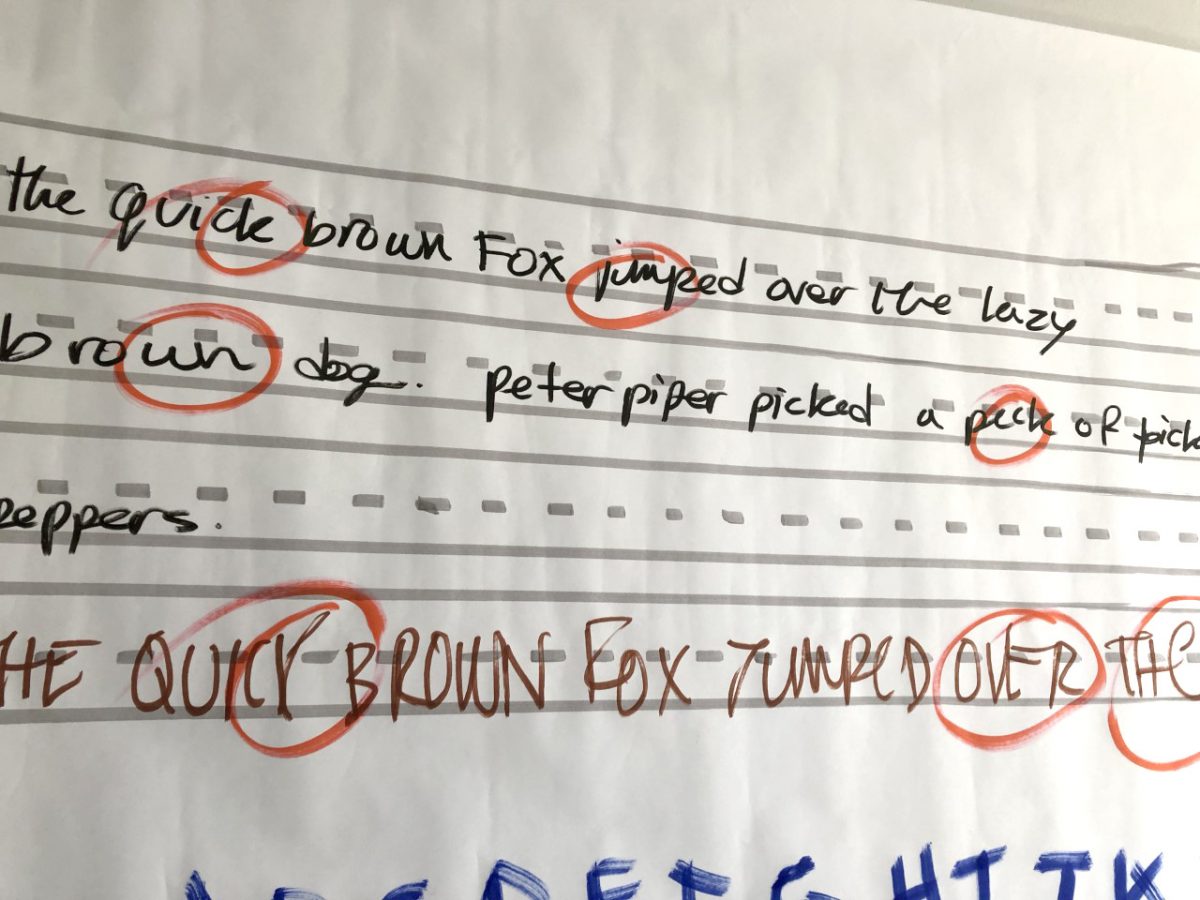 the quick brown Fox jumped over the lazy
brown dog. peter piper picked a peck of pick
peppers.
THE QUICK BROWN FOX JUMPED OVER THE
A B C D E F G H I J K